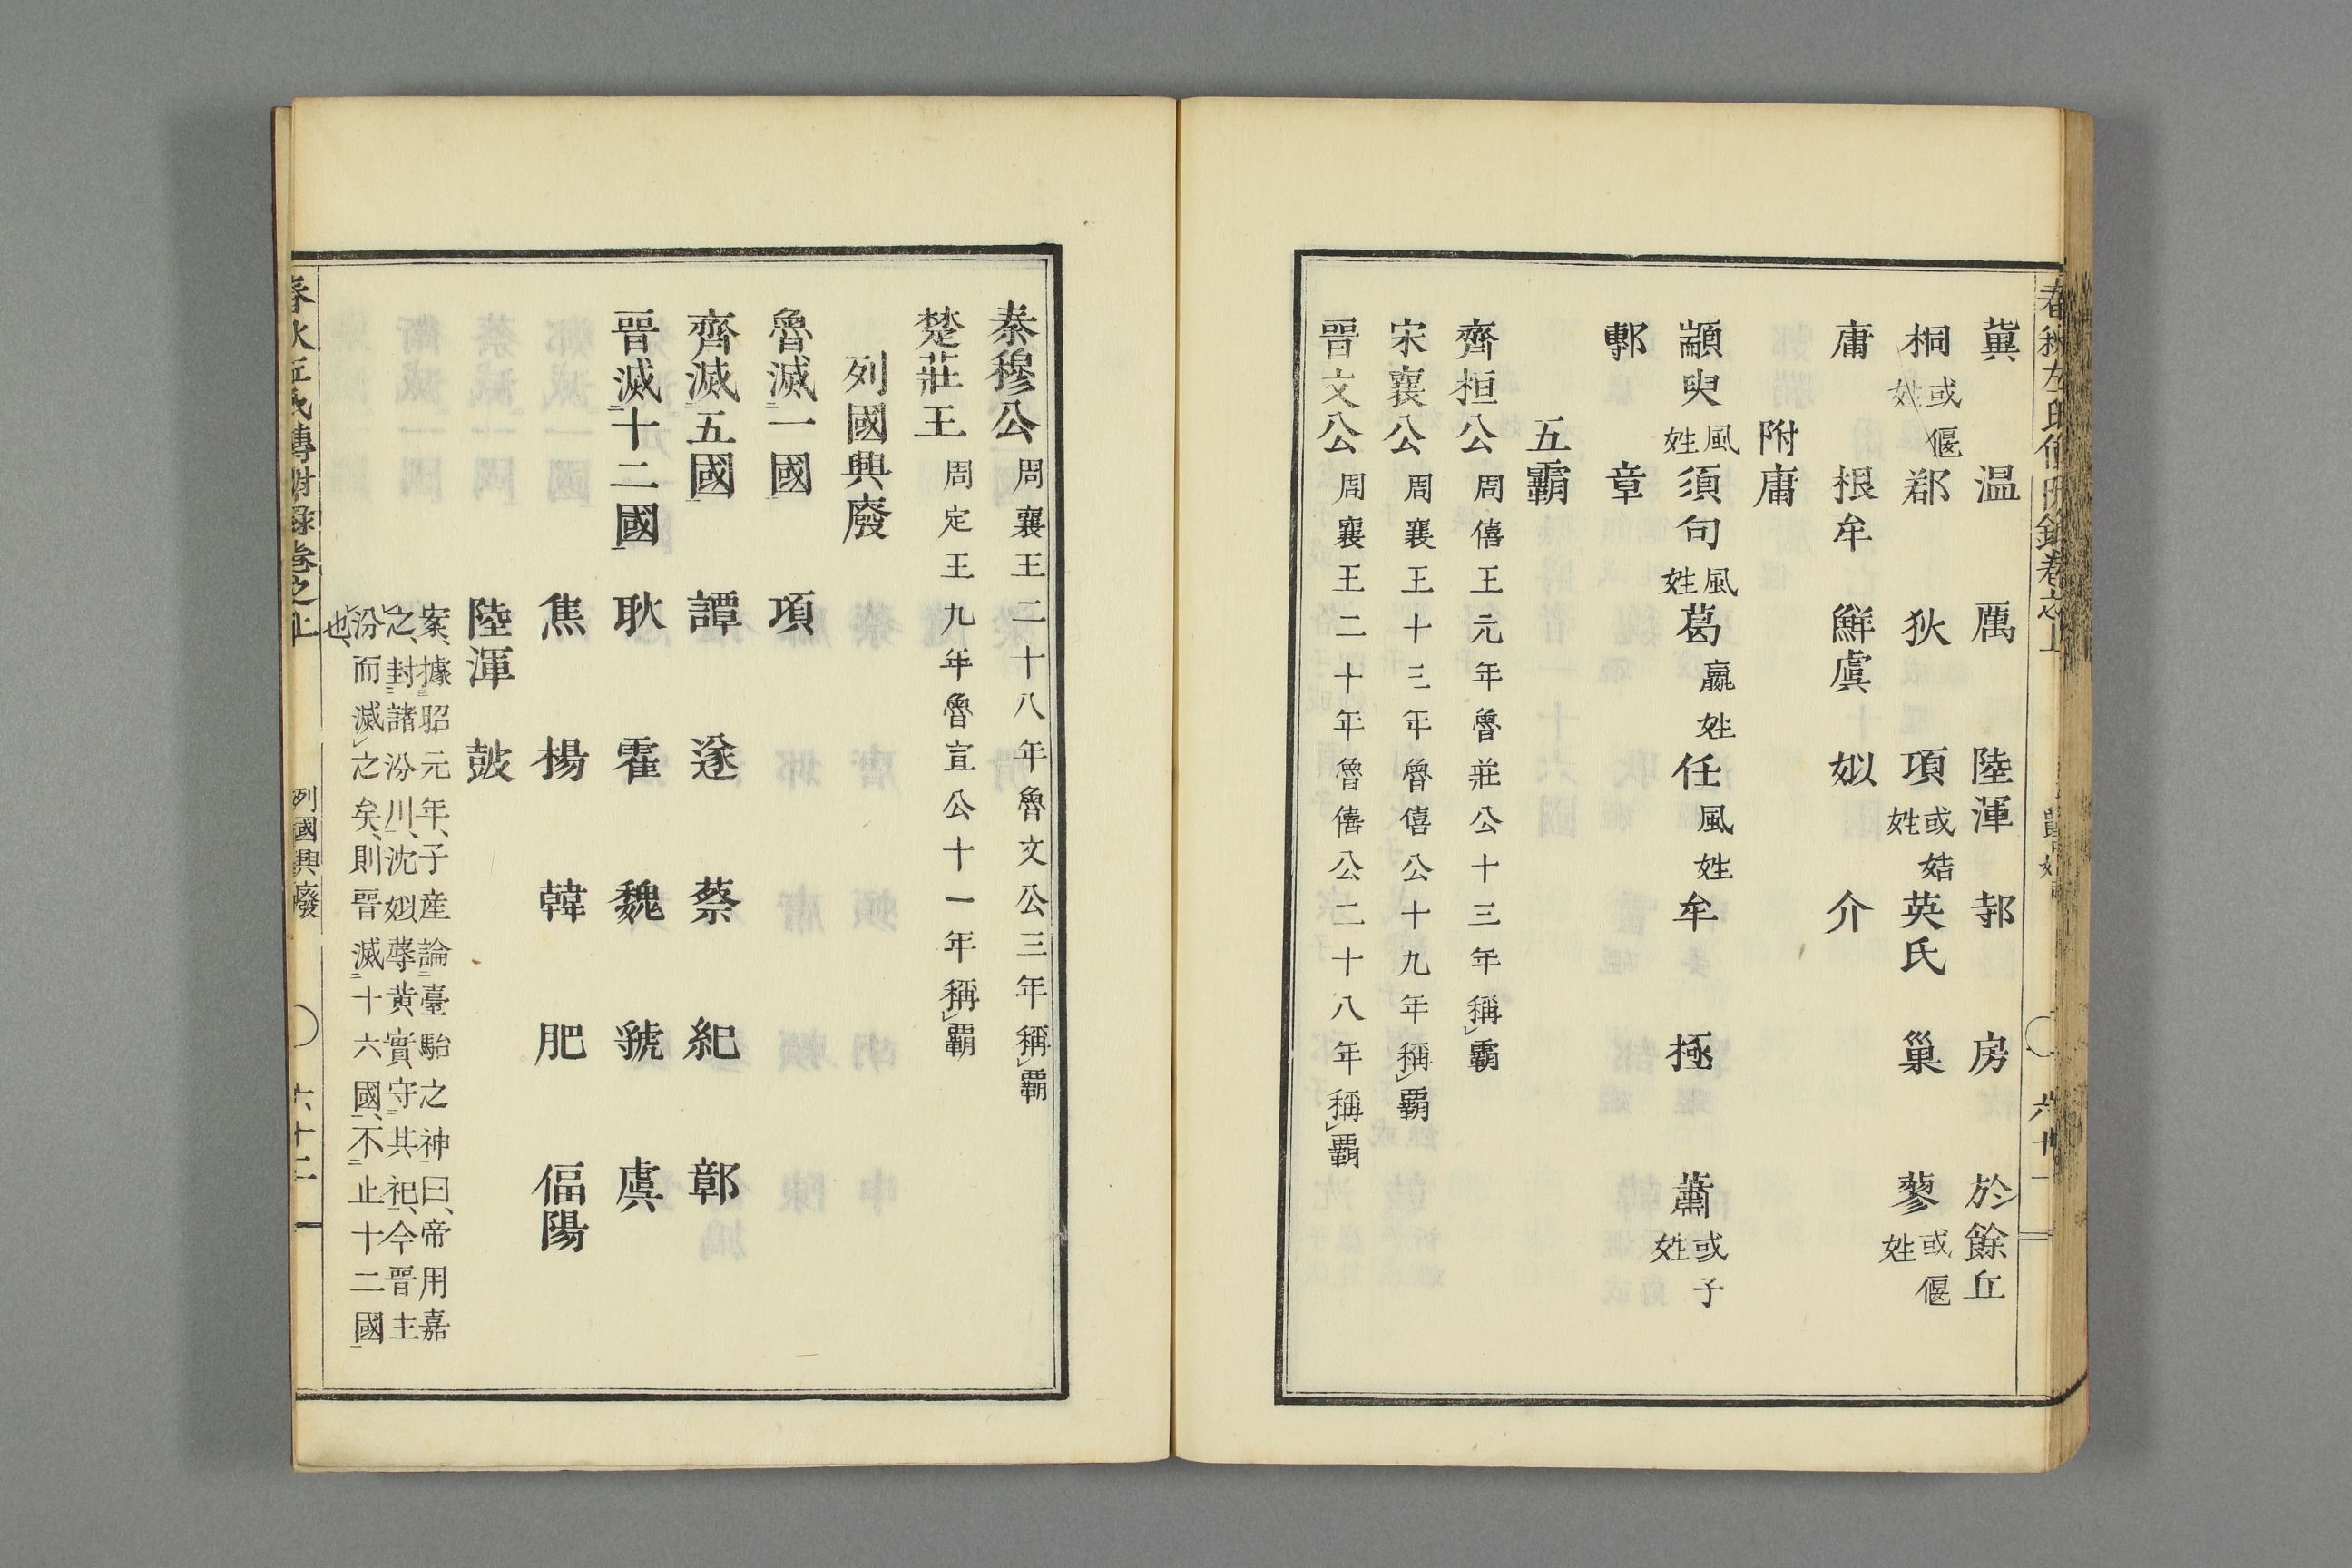 冀 温 厲 陸渾 邿 房 於餘丘
桐 或偃姓 鄀 狄 項 或姞姓 英氏 巢 蓼 或偃姓
庸 根牟 鮮虞 姒 介
附庸
顓臾 風姓 須句 風姓 葛 嬴姓 任 風姓 牟 極 蕭 或子姓
鄟 章
五霸
齊桓公 周僖王元年魯莊公十三年稱霸
宋襄公 周襄王十三年魯僖公十九年稱覇
晉文公 周襄王二十年魯僖公二十八年稱覇
六十一
秦穆公 周襄王二十八年魯文公三年稱覇
楚莊王 周定王九年魯宣公十一年稱覇
列國興廢
魯滅一國 項
齊滅五國 譚 遂 蔡 紀 鄣
晉滅十二國 耿 霍 魏 虢 虞
焦 楊 韓 肥 偪陽
陸渾 鼓
案、據昭元年、子産論臺駘之神曰、帝用嘉
之、封諸汾川、沈姒蓐黄實守其祀、今晉主
汾而滅之矣、則晉滅十六國、不止十二國
也、
春秋左氏傳附録巻之上
列國興廢
六十二